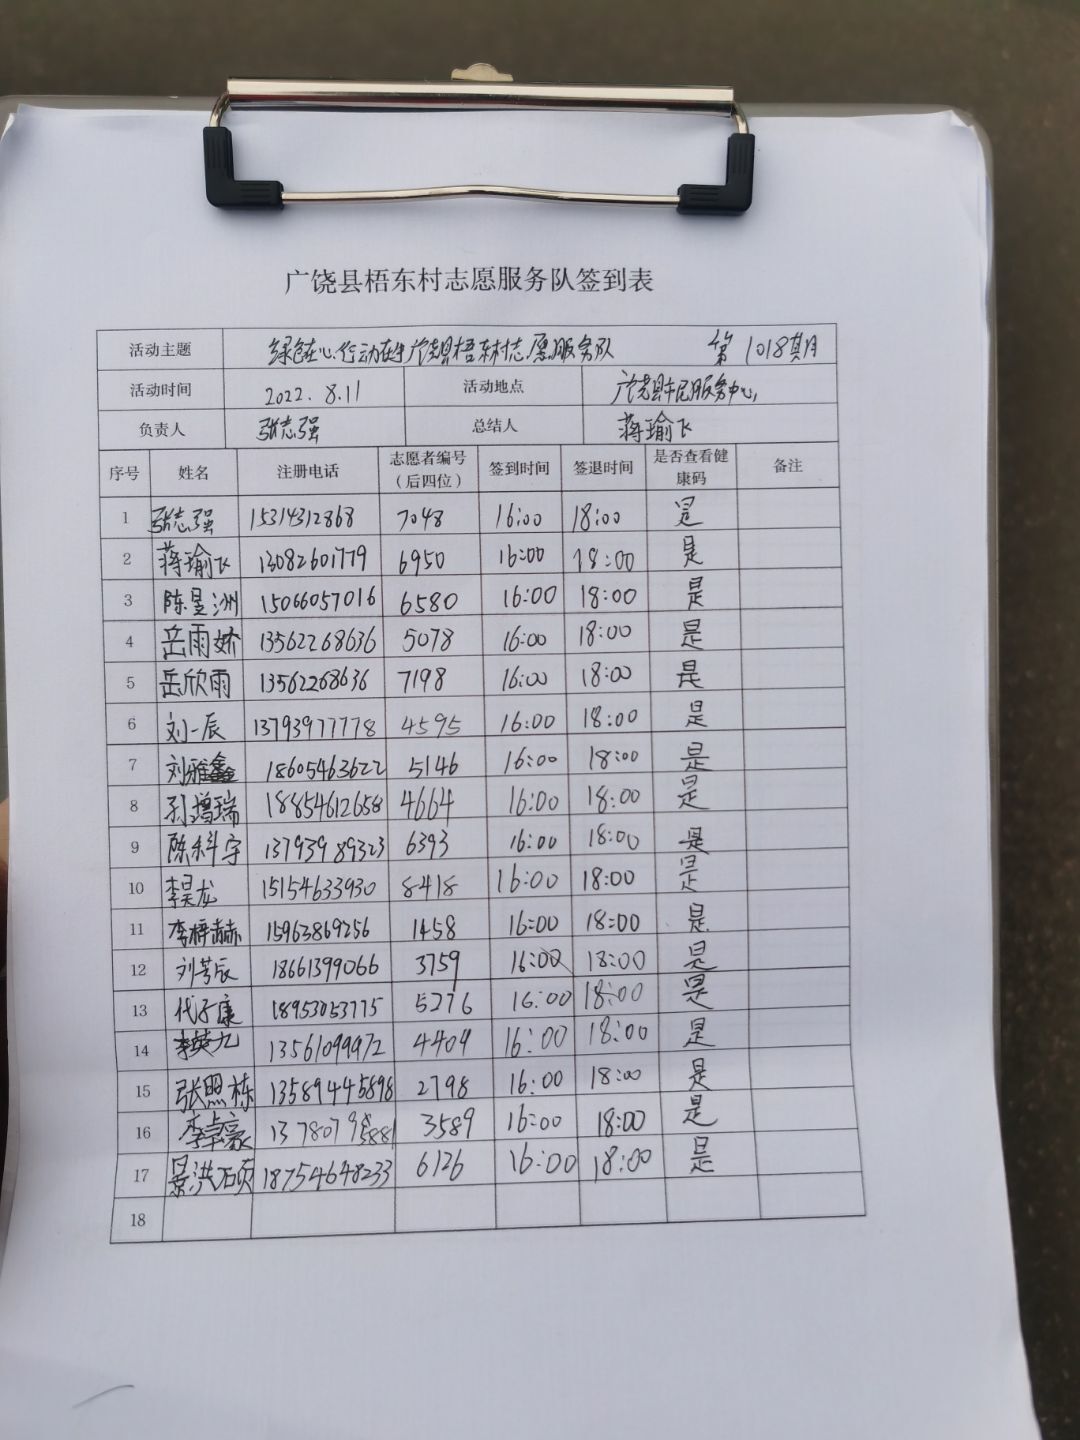 广饶县梧东村志愿服务队签到表
活动主题 绿色在心,行动在手广饶县梧东村志愿服务队 第1018期
活动时间 2022.8.11 活动地点 广饶县市民服务中心
负责人 张志强 总结人 蒋瑜飞
序号 姓名 注册电话 志愿者编号(后四位) 签到时间 签退时间 是否查看健康码 备注
1 张志强 15314312868 7048 16:00 18:00 是
2 蒋瑜飞 13082601779 6950 16:00 18:00 是
3 陈星洲 15066057016 6580 16:00 18:00 是
4 岳雨娇 13562268636 5078 16:00 18:00 是
5 岳欣雨 13562268636 7198 16:00 18:00 是
6 刘一辰 13793977778 4595 16:00 18:00 是
7 刘雅鑫 18605463622 5146 16:00 18:00 是
8 孙增瑞 18854612658 4664 16:00 18:00 是
9 陈科宇 13793989323 6393 16:00 18:00 是
10 李昊龙 15154633930 8418 16:00 18:00 是
11 李梓赫 15963869256 1458 16:00 18:00 是
12 刘芳辰 18661399066 3759 16:00 18:00 是
13 代子康 18953053775 5276 16:00 18:00 是
14 李英九 13561099972 4409 16:00 18:00 是
15 张照栋 13589445898 2798 16:00 18:00 是
16 李卓豪 13780795881 3589 16:00 18:00 是
17 景洪硕 18754648233 6126 16:00 18:00 是
18